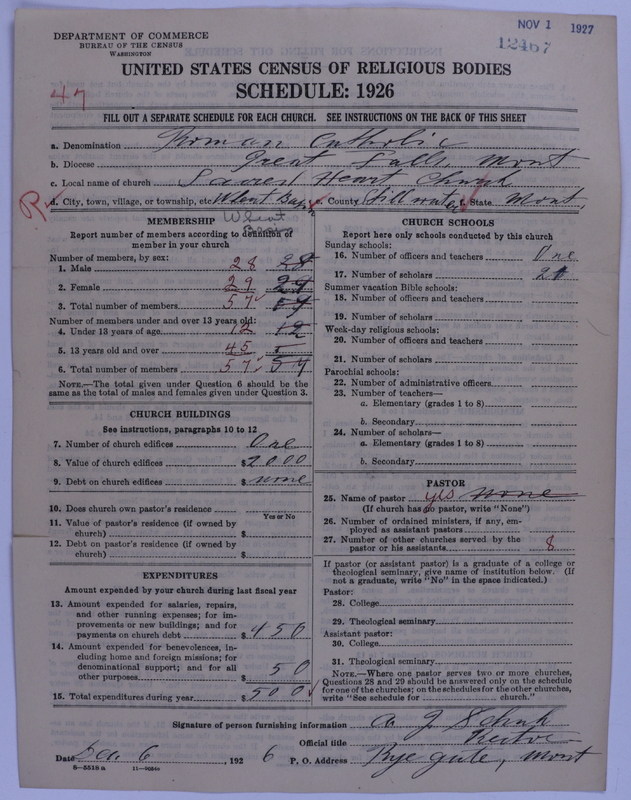 NOV 1 1927
12467
DEPARTMENT OF COMMERCE
BUREAU OF THE CENSUS
WASHINGTON
UNITED STATES CENSUS OF RELIGIOUS BODIES
SCHEDULE: 1926
47
FILL OUT A SEPARATE SCHEDULE FOR EACH CHURCH. SEE INSTRUCTIONS ON THE BACK OF THIS SHEET
a. Denomination Roman Catholic
b. Diocese Great Falls, Mont
c. Local name of church Sacred Heart Church
d. City, town, village, or township, etc Wheat Basin e. County Stillwater f. State Mont.
Wheat Basin
MEMBERSHIP
Report number of members according to definition of
member in your church
Number of members, by sex:
1. Male 28 28
2. Female 29 29
3. Total number of members 57 57
Number of members under and over 13 years old:
4. Under 13 years of age 12 12
5. 13 years old and over 45
6. Total number of members 57 57
NOTE.—The total given under Question 6 should be
same as the total of males and females given under Question 3.
CHURCH BUILDINGS
See instructions, paragraphs 10 to 12
7. Number of church edifices One
8. Value of church edifices $2000
9. Debt on church edifices $none
10. Does church own pastor's residence
Yes or No
11. Value of pastor's residence (if owned by
church) $
12. Debt on pastor's residence (if owned by
church) $
EXPENDITURES
Amount expended by your church during last fiscal year
13. Amount expended for salaries, repairs,
and other running expenses; for im-
provements or new buildings; and for
payments on church debt $450
14. Amount expended for benevolences, in-
cluding home and foreign missions; for
denominational support; and for all
other purposes 50
15. Total expenditures during year $500
CHURCH SCHOOLS
Report here only schools conducted by this church
Sunday schools:
16. Number of officers and teachers One
17. Number of scholars 21
Summer vacation Bible schools:
18. Number of officers and teachers
19. Number of scholars
Week-day religious schools:
20. Number of officers and teachers
21. Number of scholars
Parochial schools:
22. Number of administrative officers
23. Number of teachers—
a. Elementary (grades 1 to 8)
b. Secondary
24. Number of scholars—
a. Elementary (grades 1 to 8)
b. Secondary
PASTOR
25. Name of pastor yes none
(If church has no pastor, write "None")
26. Number of ordained ministers, if any, em-
ployed as assistant pastors
27. Number of other churches served by the
pastor or his assistants 8
If pastor (or assistant pastor) is a graduate of a college or
theological seminary, give name of institution below. (If
not a graduate, write "No" in the space indicated.)
Pastor:
28. College
29. Theological seminary
Assistant pastor:
30. College
31. Theological seminary
NOTE.—Where one pastor serves two or more churches,
Questions 28 and 29 should be answered only on the schedule
for one of the churches; on the schedules for the other churches,
write "See schedule for church."
Signature of person furnishing information A J
Official title Rector
Date Dec. 6, 1926 P. O. Address Ryegate, Mont
8—5518 a 11—9034